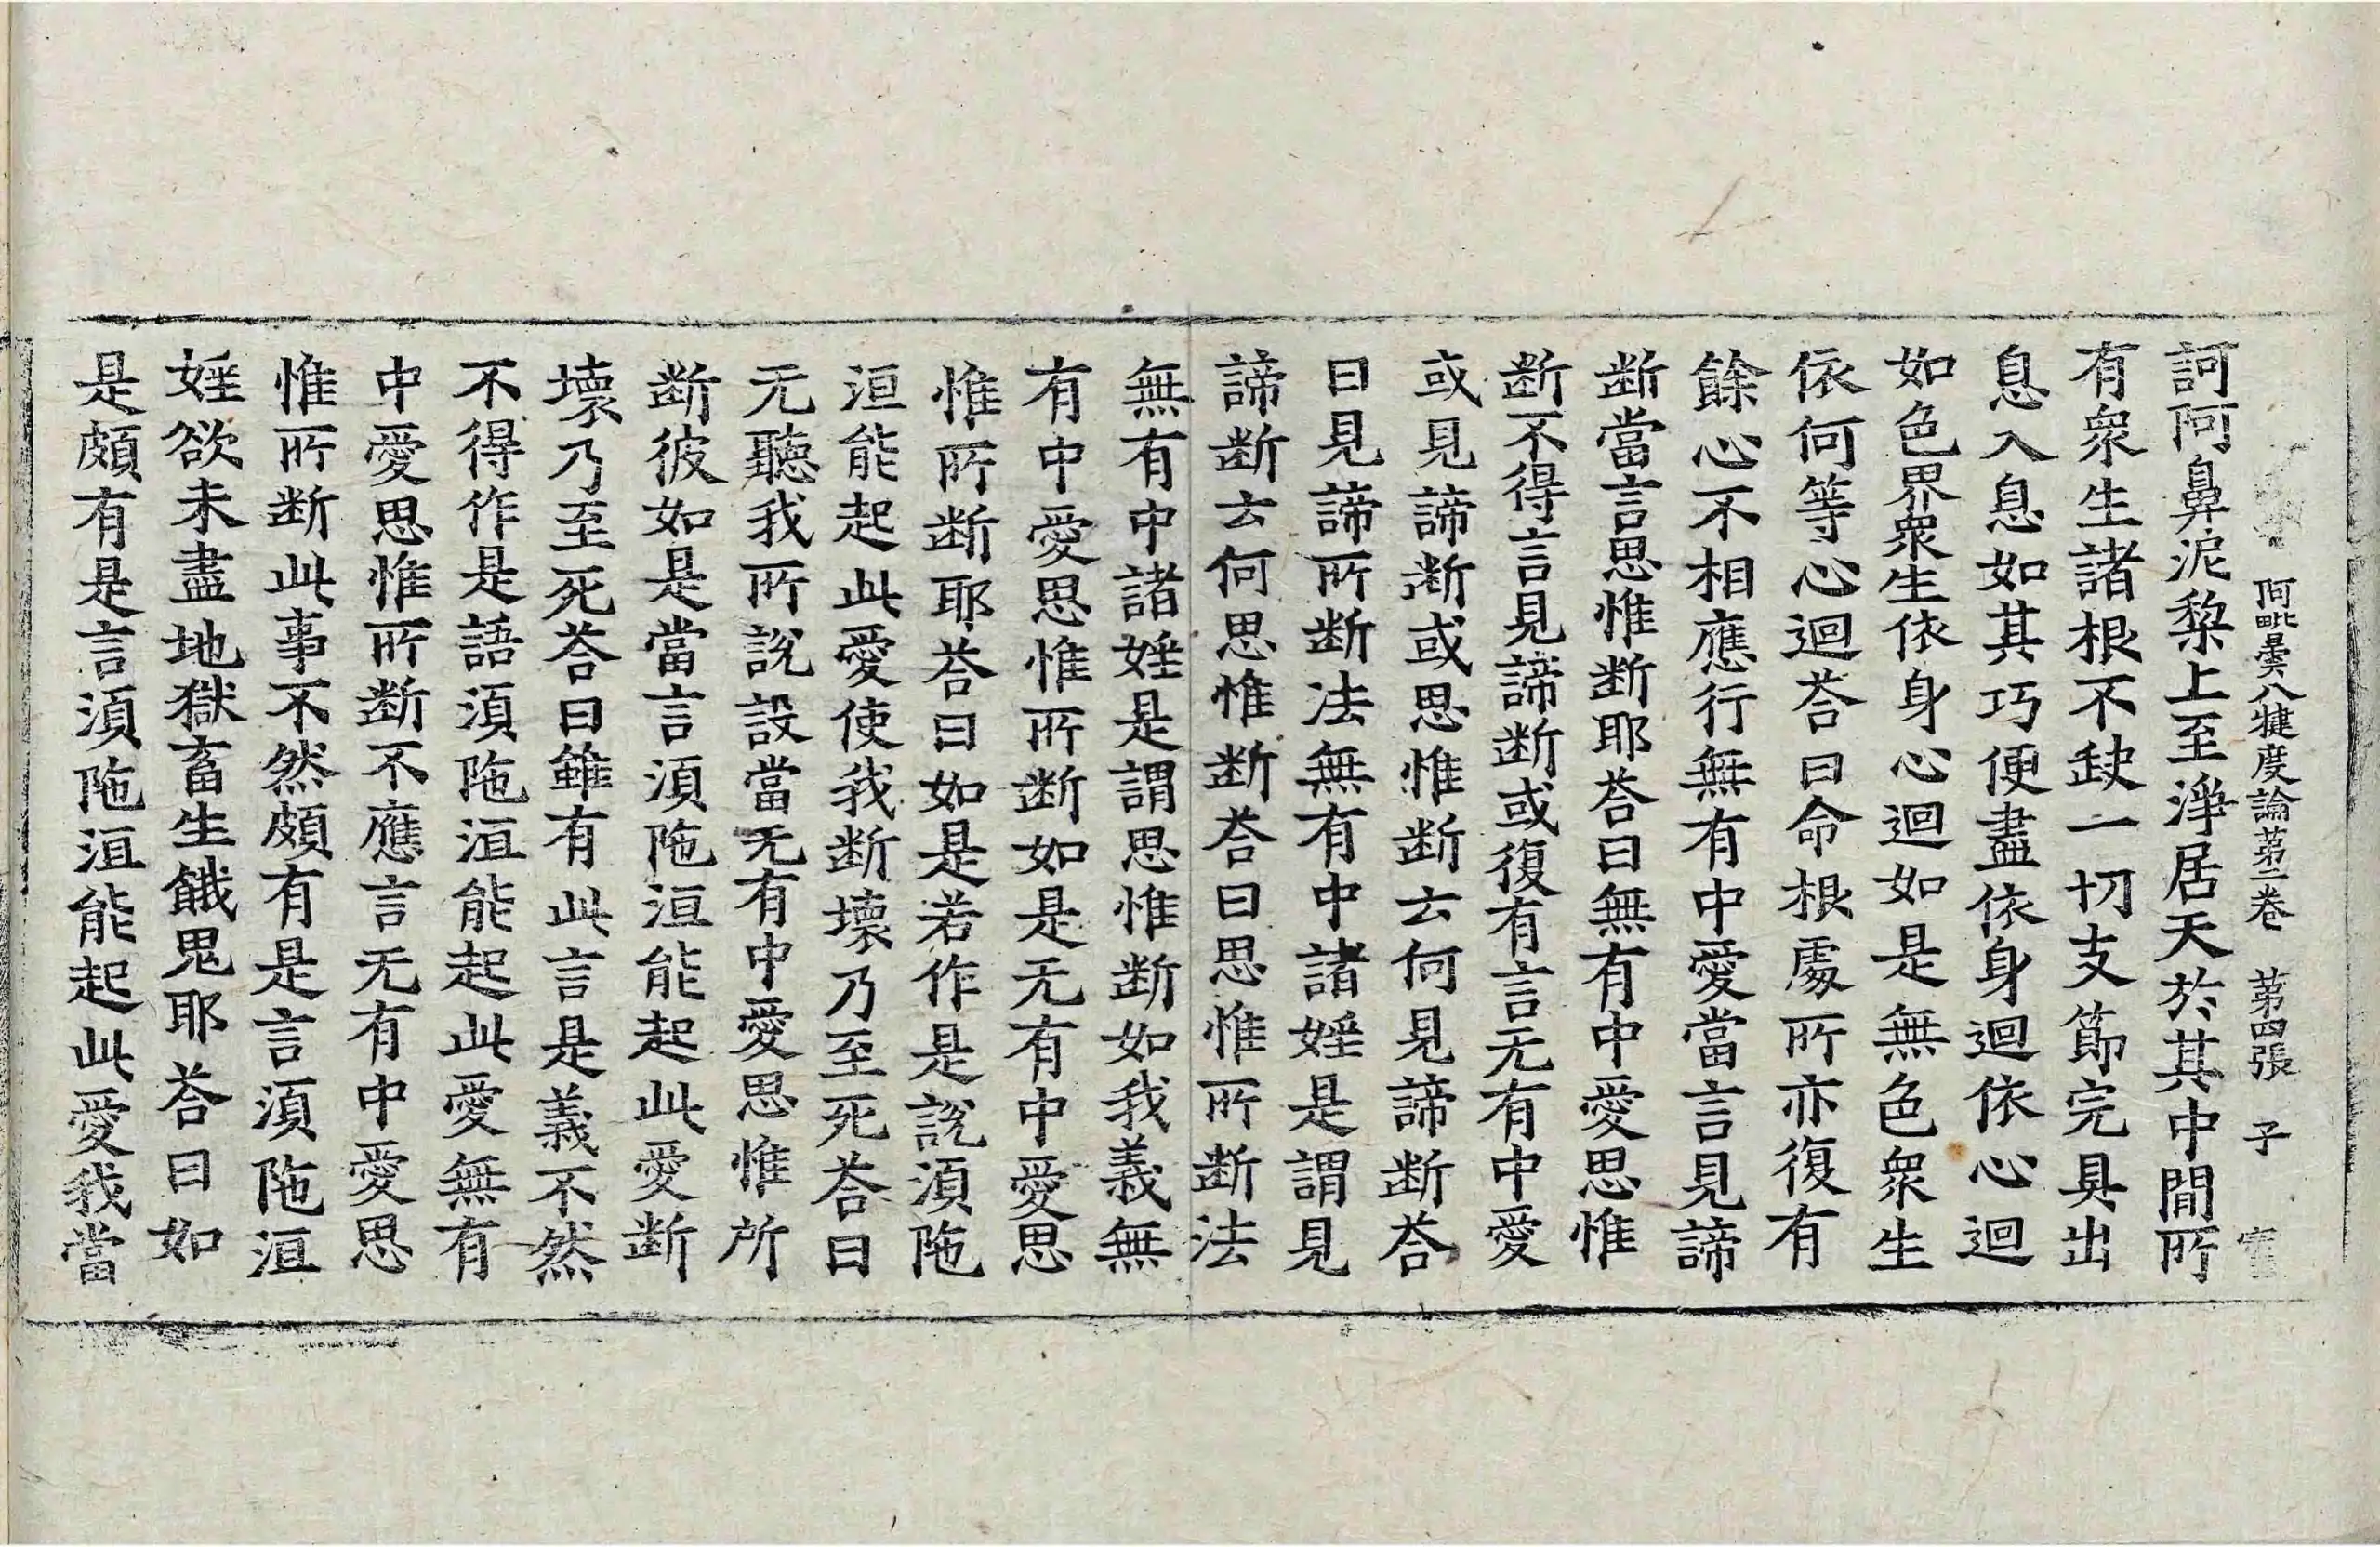 阿毗曇八犍度論苐二卷 苐四張 子
訶阿鼻泥犂上至淨居天於其中閒所
有衆生諸根不缺一切支節完具出
息入息如其巧便盡依身迴依心迴
如色界衆生依身心迴如是無色衆生
依何等心迴荅曰命根處所亦復有
餘心不相應行無有中愛當言見諦
断當言思惟断耶荅曰無有中愛思惟
断不得言見諦断或復有言无有中愛
或見諦断或思惟断云何見諦断荅
曰見諦所断法無有中諸婬是謂見
諦断云何思惟断荅曰思惟所断法
無有中諸婬是謂思惟断如我義無
有中愛思惟所断如是无有中愛思
惟所断耶荅曰如是若作是說湏陁
洹能起此愛使我断壞乃至死荅曰
无聽我所說設當无有中愛思惟所
断彼如是當言湏陁洹能起此愛断
壞乃至死荅曰雖有此言是義不然
不得作是語湏陁洹能起此愛無有
中愛思惟所断不應言无有中愛思
惟所断此事不然頗有是言湏陁洹
婬欲未盡地獄畜生餓鬼耶荅曰如
是頗有是言湏陁洹能起此愛我當